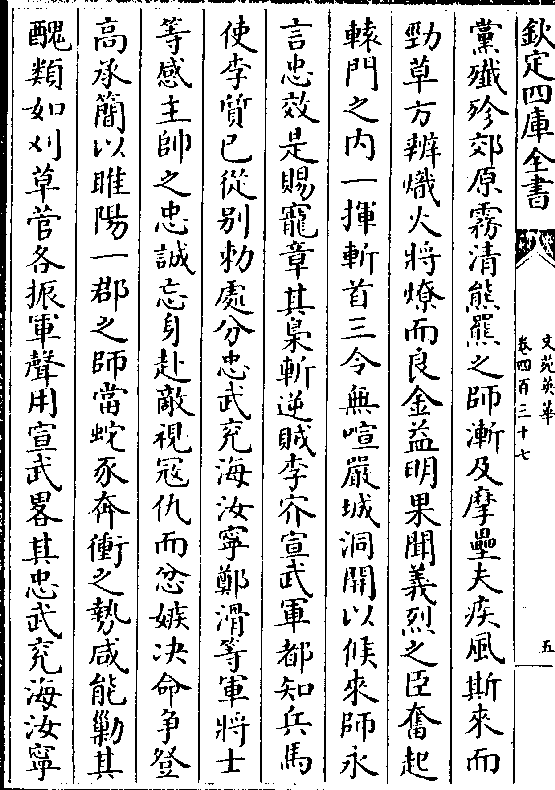 欽定四庫全書
文苑英華
卷四百三十七
五
黨殲殄郊原霧清熊羆之師漸及摩壘夫疾風斯來而
勁草方辨熾火將燎而良金益明果聞義烈之臣奮起
轅門之内一揮斬首三令無喧嚴城洞開以候來師永
言忠效是賜寵章其梟斬逆賊李㝏宣武軍都知兵馬
使李質已從别勅處分忠武兖海汝寧鄭滑等軍將士
等感主帥之忠誠忘身赴敵視冦仇而忿嫉决命争登
高承簡以睢陽一郡之師當蛇豕奔衝之勢咸能勦其
醜類如刈草菅各振軍聲用宣武畧其忠武兖海汝寧